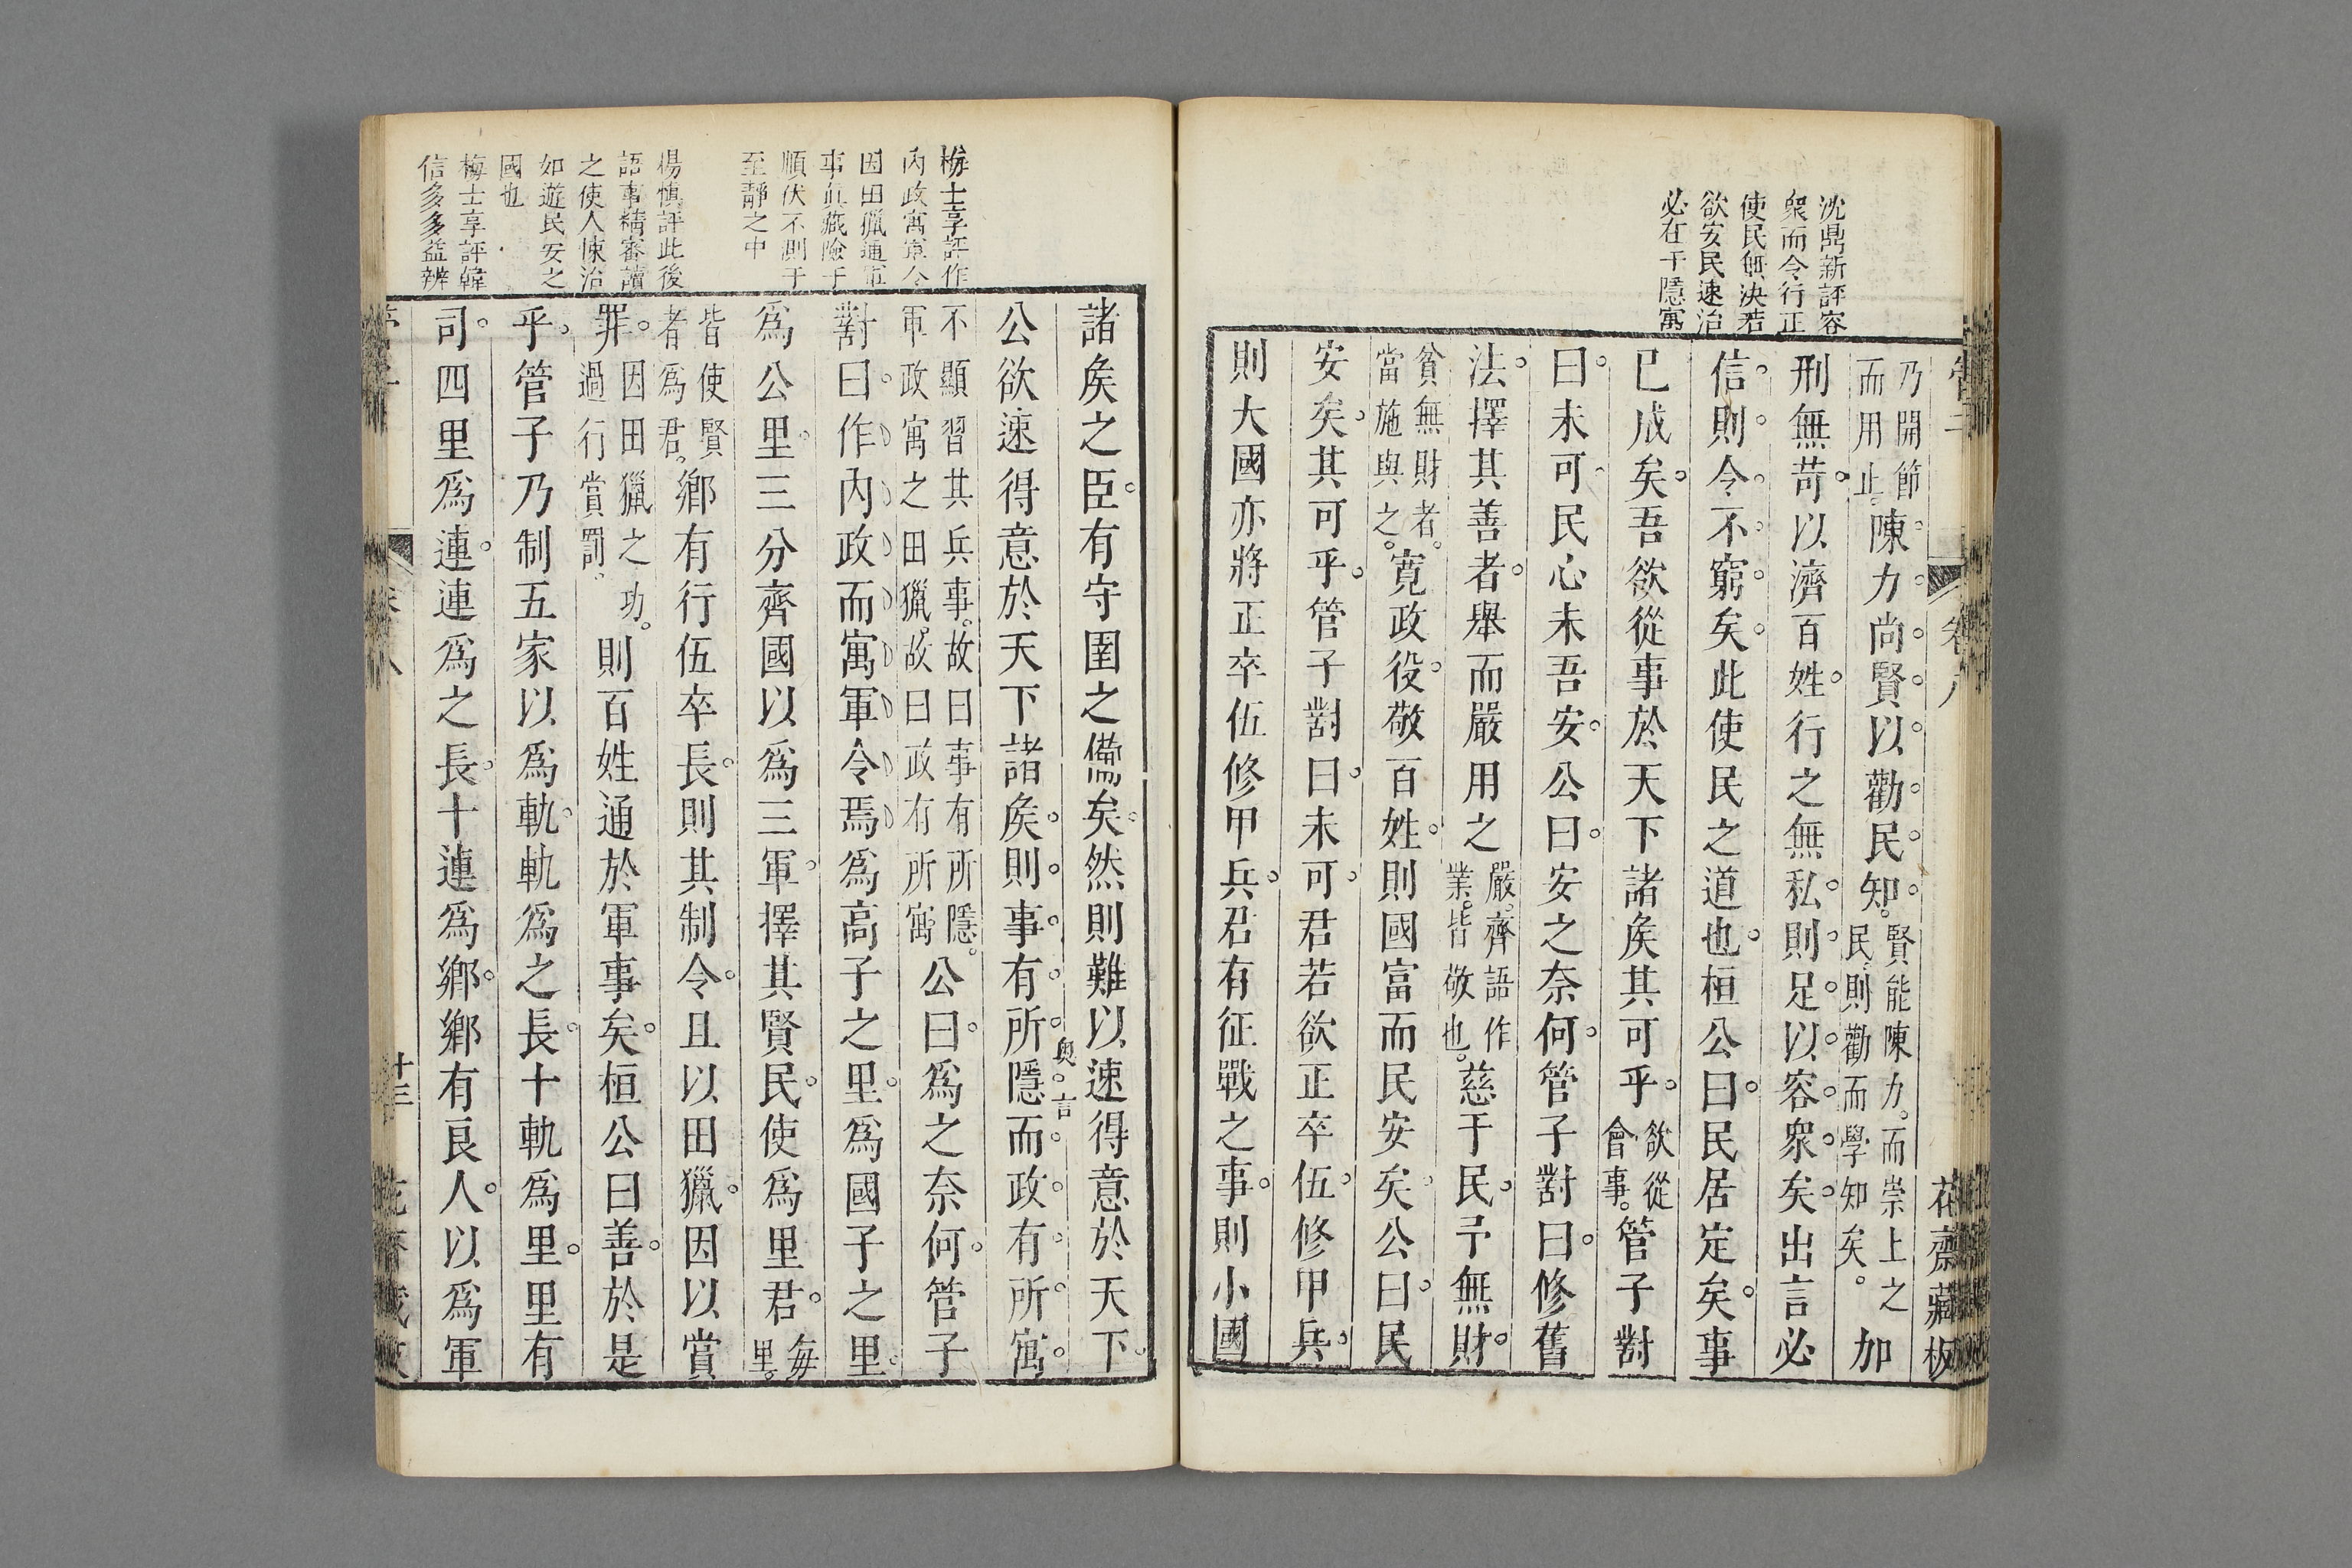 沈鼎新評容
衆而令行正
使民無決若
欲安民速治
必在于隱寓
卷八
花齋藏板
乃開節
而用止。陳力尚賢以勸民知。賢能陳力。而崇上之
民則勸而學知矣。加
刑無苛以濟百姓行之無私則足以容衆矣出言必
信則令不窮矣此使民之道也桓公曰民居定矣事
已成矣吾欲從事於天下諸矦其可乎欲從
會事。管子對
曰未可民心未吾安公曰安之奈何管子對曰修舊
法擇其善者舉而嚴用之嚴齊語作
業。皆敬也。慈于民予無財
貧無財者。
當施與之。寛政役敬百姓則國富而民安矣公曰民
安矣其可乎管子對曰未可君若欲正卒伍修甲兵
則大國亦將正卒伍修甲兵君有征戰之事則小國
梅士享評作
內政寓軍令
因田獵通軍
事真藏險于
順伏不測于
至靜之中
楊慎評此後
語事精審讀
之使人悚治
如遊民安之
國也
梅士享評韓
信多多益辨
諸矦之臣有守圉之備矣然則難以速得意於天下
奧言
公欲速得意於天下諸矦則事有所隱而政有所寓
不顯習其兵事。故曰事有所隱。
軍政寓之田獵。故曰政有所寓公曰爲之奈何管子
對曰作內政而寓軍令焉爲高子之里爲國子之里
爲公里三分齊國以爲三軍擇其賢民使爲里君每
里。
皆使賢
者爲君。鄉有行伍卒長則其制令且以田獵因以賞
罪因田獵之功。
過行賞罰。則百姓通於軍事矣桓公曰善於是
乎管子乃制五家以爲軌軌爲之長十軌爲里里有
司四里爲連連爲之長十連爲鄉鄉有良人以爲軍
十三